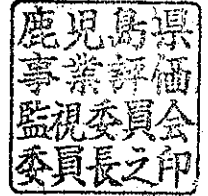 鹿児島県
事業評価
監視委員会
委員長之印